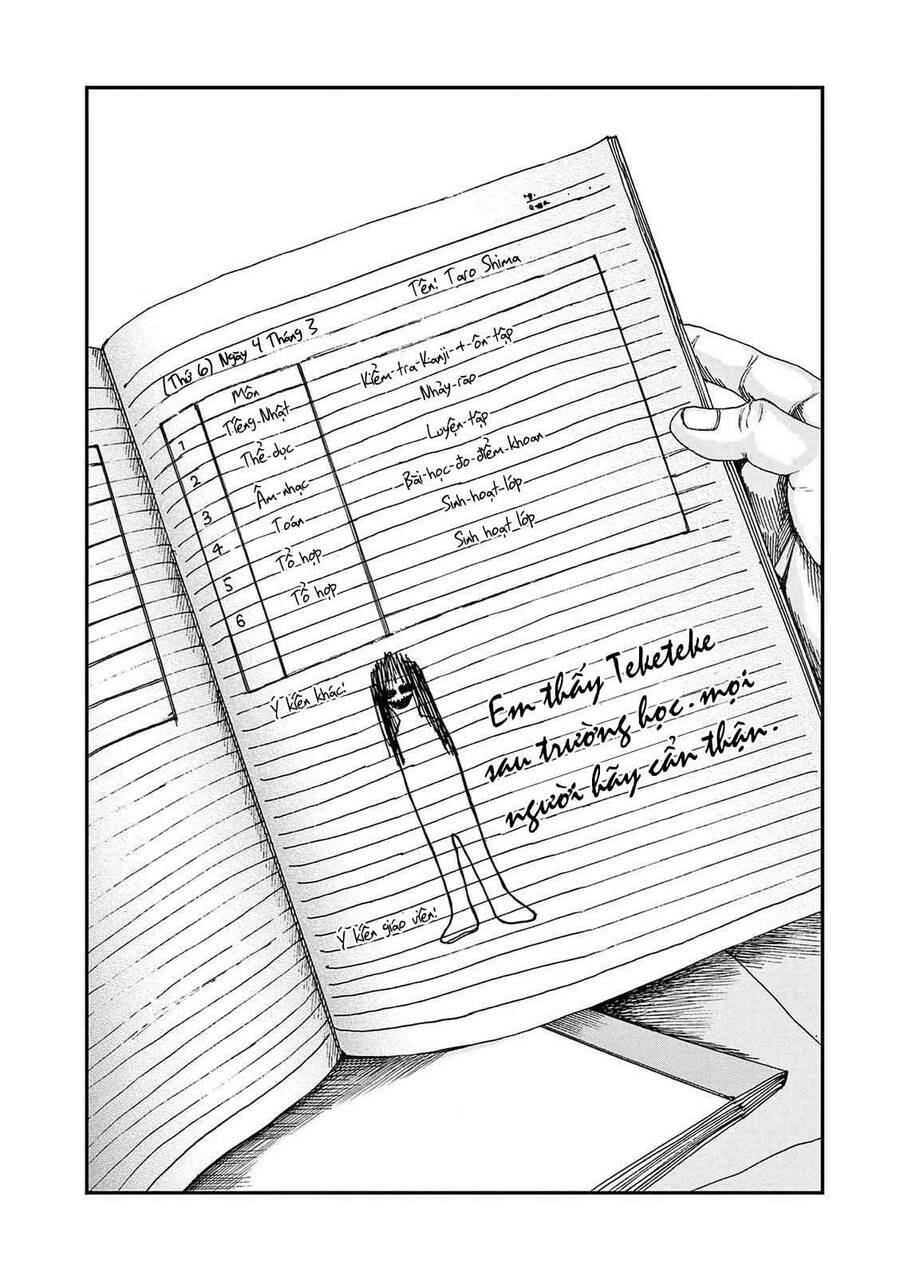 Tên: Taro Shima
(Thứ 6) Ngày 4 Tháng 3
Môn
1 Tiếng Nhật Kiểm tra Kanji + ôn tập
2 Thể dục Nhảy rào
3 Âm nhạc Luyện tập
4 Toán Bài học đo điểm khoan
5 Tổ hợp Sinh hoạt lớp
6 Tổ hợp Sinh hoạt lớp
Ý kiến khác:
Em thấy Teketeke
sau trường học. mọi
người hãy cẩn thận.
Ý kiến giáo viên: